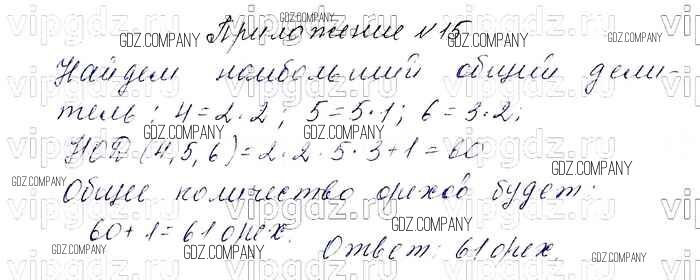 Приложение №15
Найдем наибольший общий дели-
тель: 4=2·2; 5=5·1; 6=3·2;
НОД (4,5,6)=2·2·5·3+1=60
Общее количество орехов будет:
60+1=61 орех.
Ответ: 61 орех.
GDZ.COMPANY
vipgdz.ru